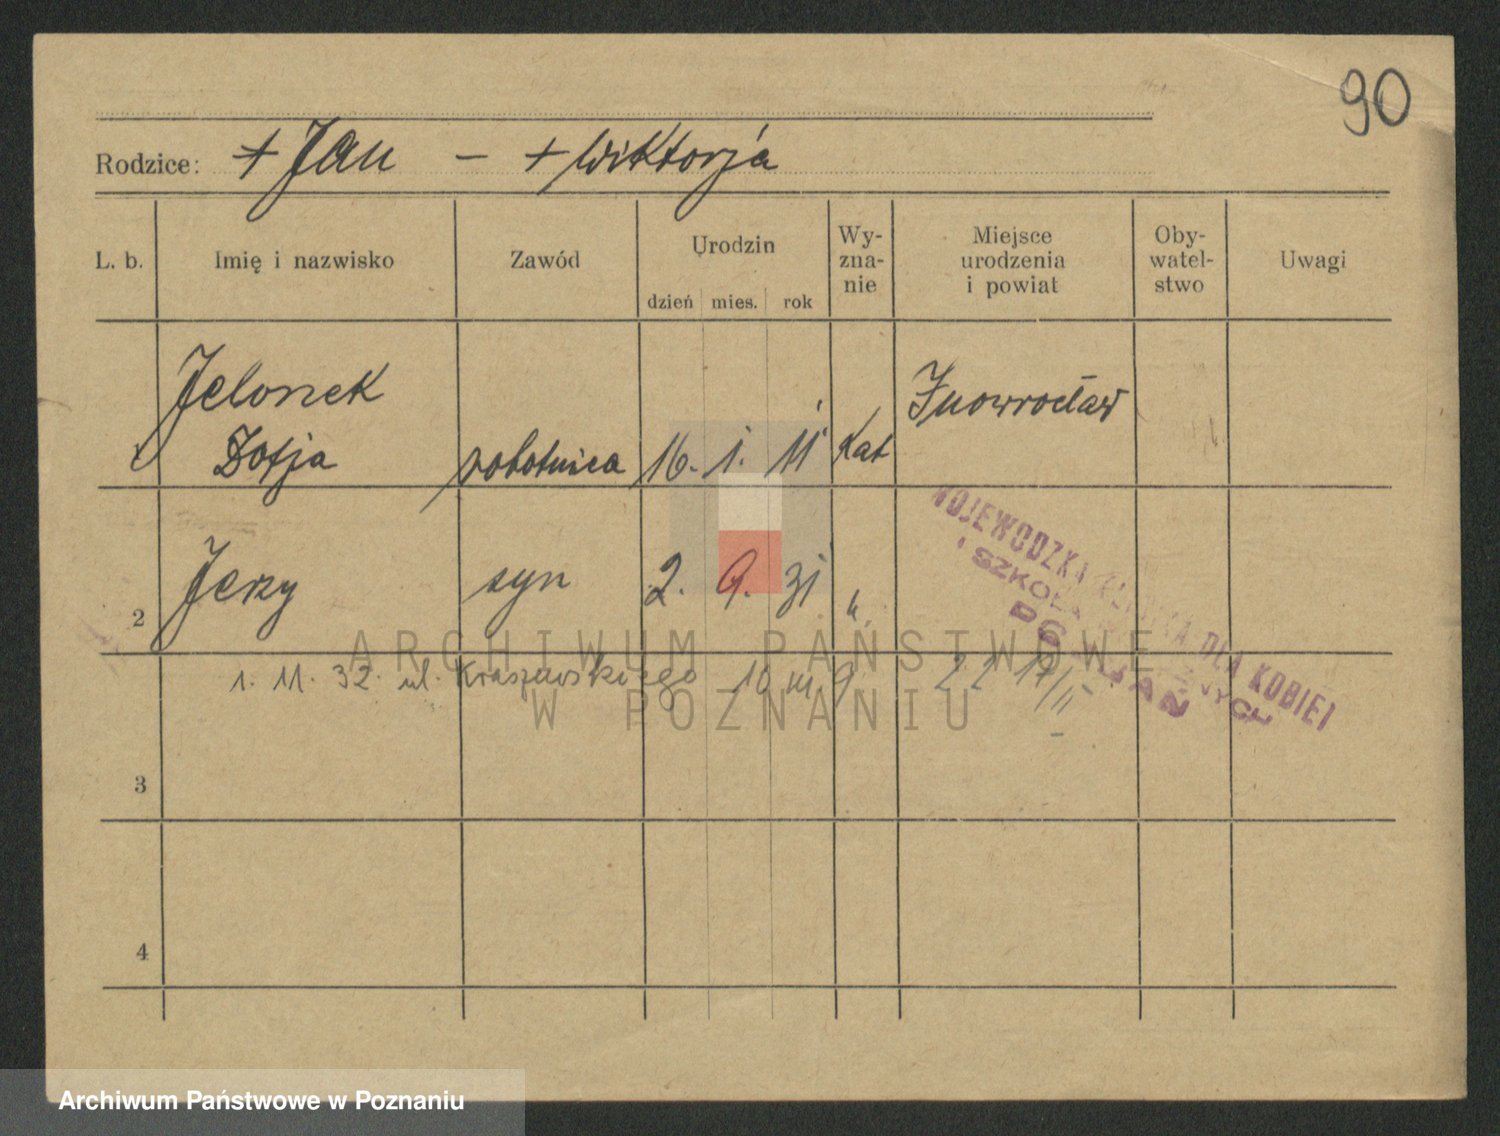 90
Rodzice: + Jan - + Wiktorja
L. b. Imię i nazwisko Zawód Urodzin dzień mies. rok Wy-zna-nie Miejsce urodzenia i powiat Oby-watel-stwo Uwagi
Jelonek Inowrocław
Zofja robotnica 16. 1. 11 Kat
2 Jerzy syn 2. 9. 31 "
WOJEWODZKA KLINIKA DLA KOBIET
I SZKOŁA
POZNAŃ
ARCHIWUM PAŃSTWOWE
1. 11. 32. ul. Kraszewskiego 10 m 9 22 17/11
W POZNANIU
3
4
Archiwum Państwowe w Poznaniu